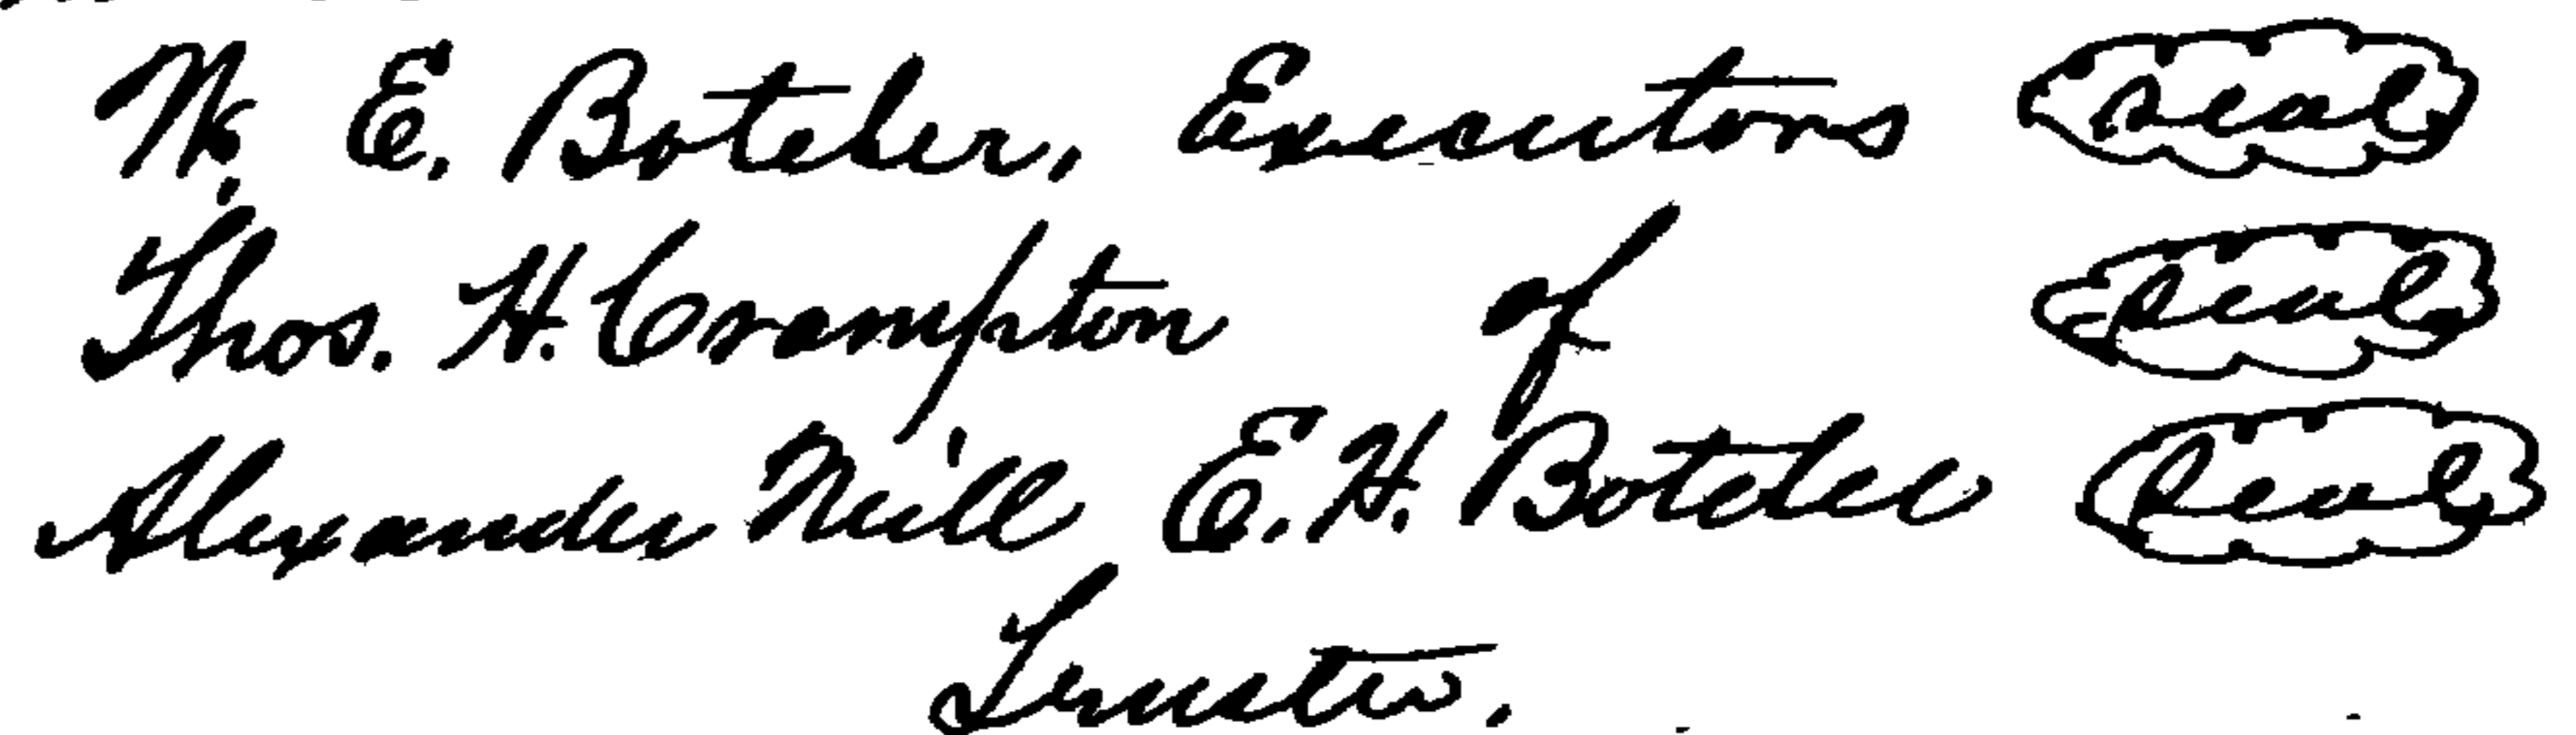 W. E. Boteler, Executors seal
Thos. H. Crampton of seal
Alexander Neill E. H. Boteler seal
Trustee.